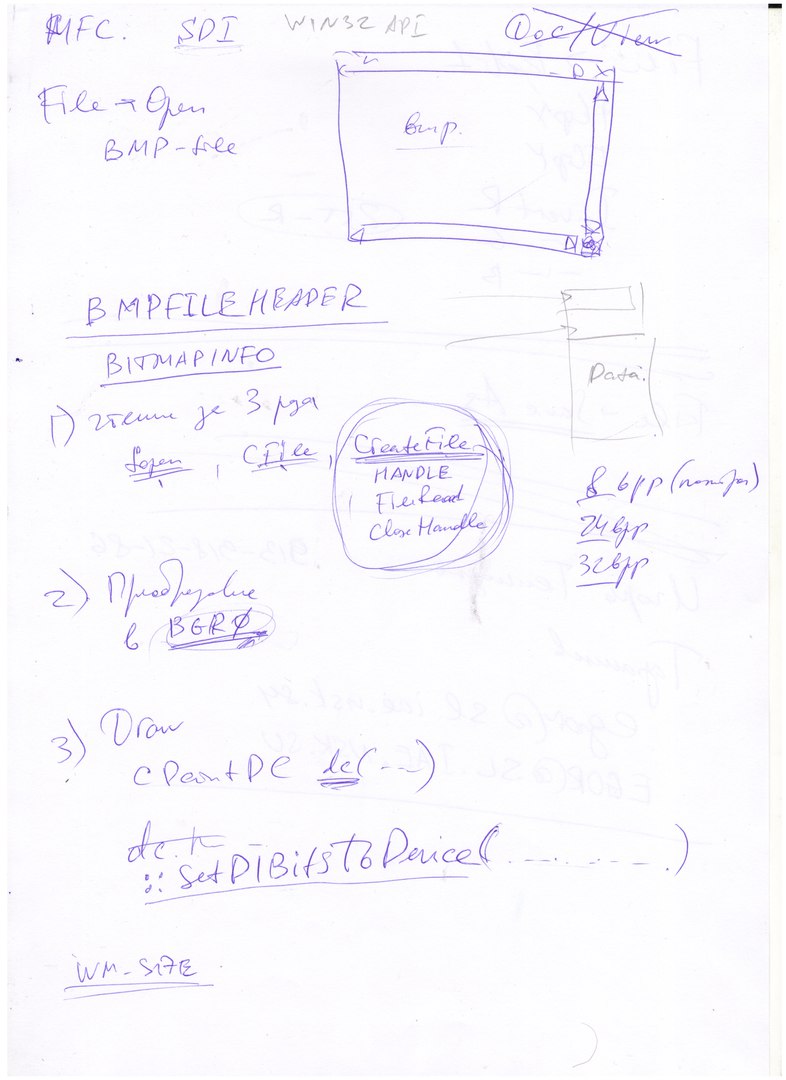 MFC. SDI WIN32 API Doc/View
File → Open
BMP-file
bmp.
BMPFILEHEADER
BITMAPINFO
Data.
1) чтение за 3 р
fopen, CFile, CreateFile
HANDLE
FileRead
CloseHandle
8 bpp (палитра)
24 bpp
32 bpp
2) Преобразование
в BGR0
3) Draw
CPaintDC dc(...)
dc.
::SetDIBitsToDevice(.............)
WM_SIZE